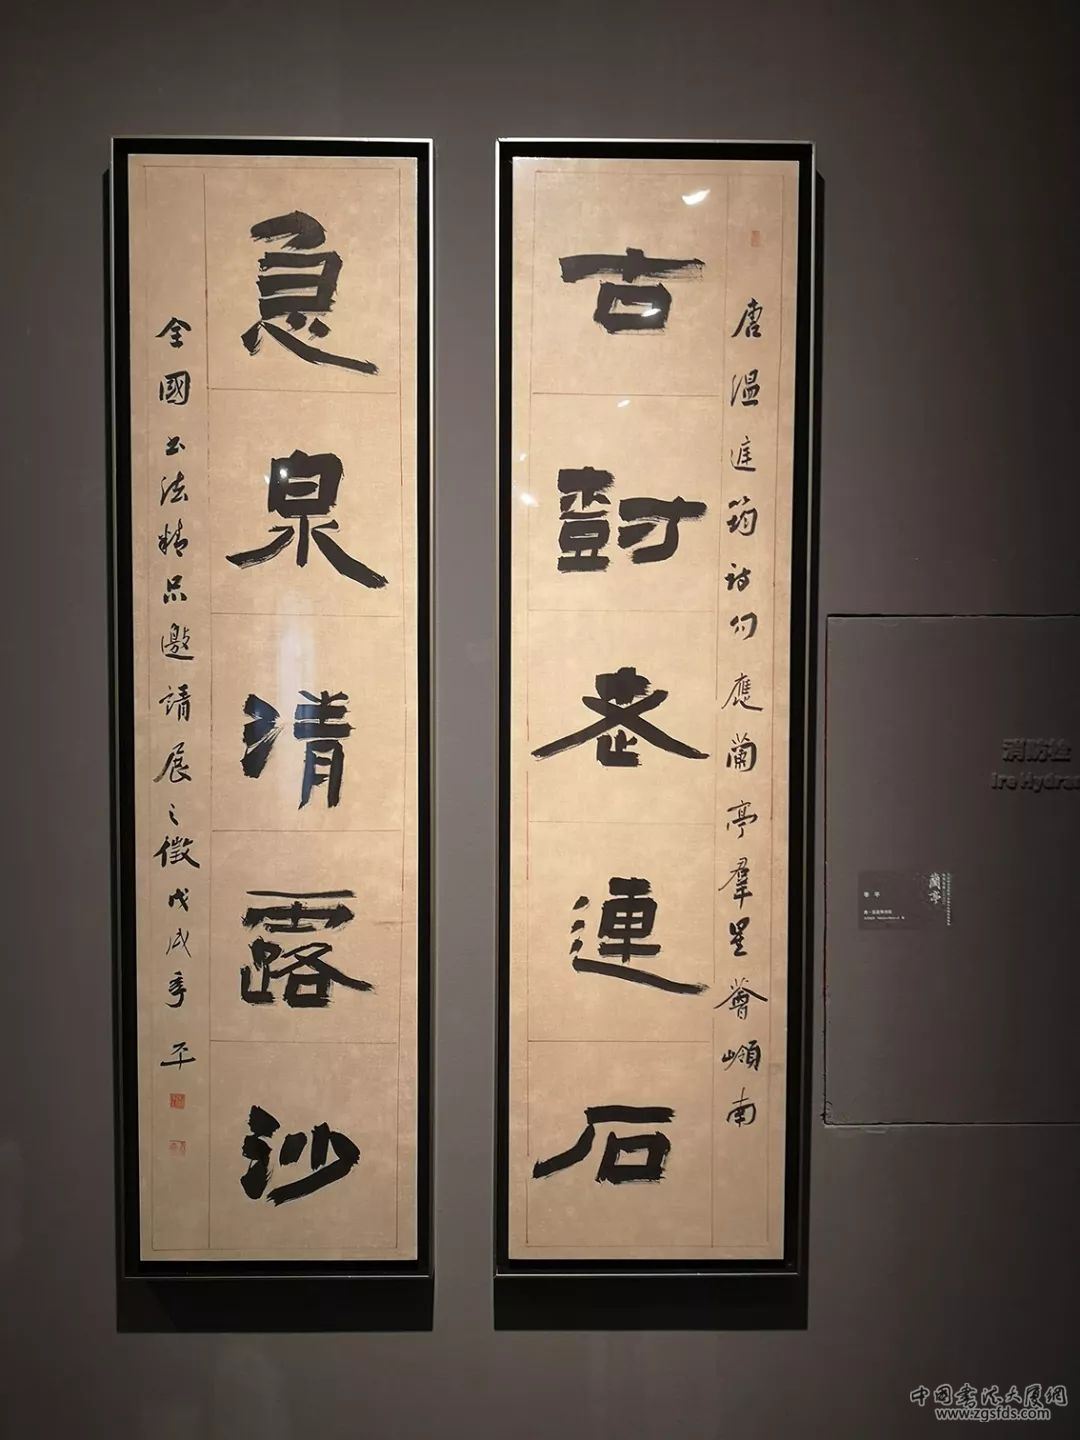 唐溫庭筠詩句應蘭亭羣星薈嶺南
古樹老連石
急泉清露沙
全國書法精品邀請展之徵戊戌季平
消防栓
ire Hydra
蘭亭
中國書法大厦網
www.zgsfds.com